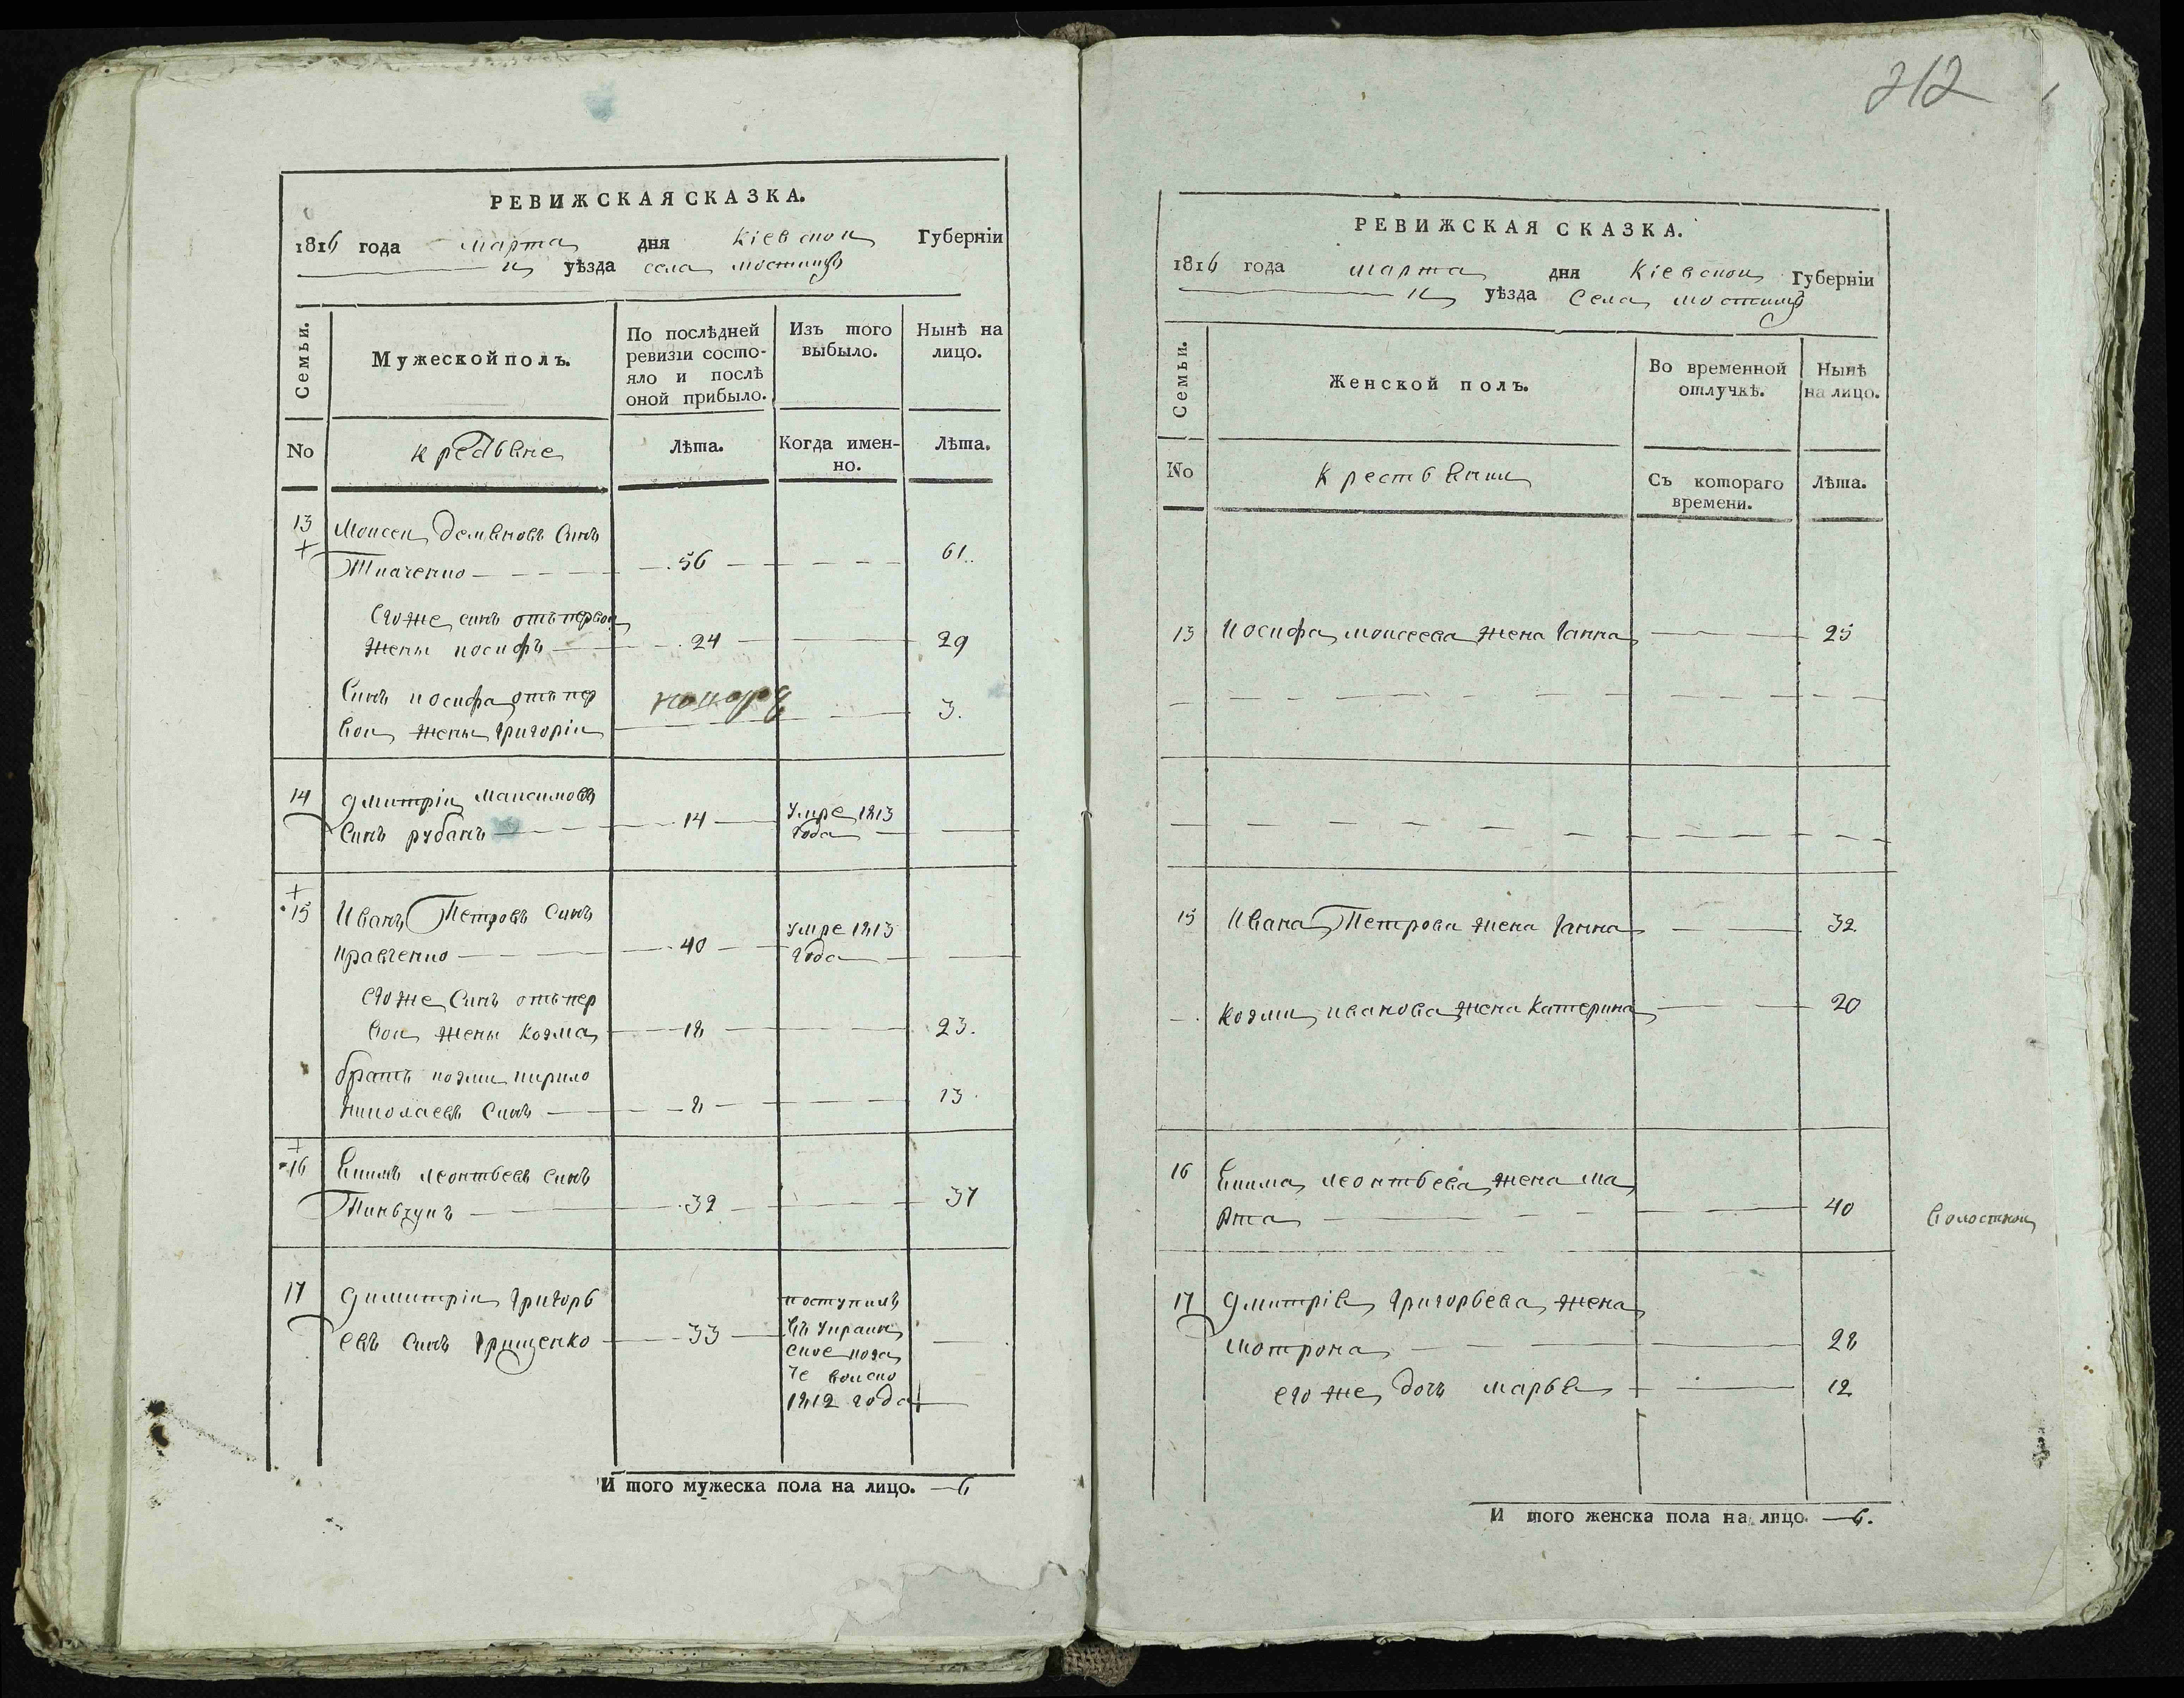 212
РЕВИЖСКАЯ СКАЗКА.
1816 года марта дня Кіевской Губерніи
уѣзда села мостищъ
Семьи.
Мужеской полъ.
По послѣдней ревизіи состояло и послѣ оной прибыло.
Изъ того выбыло.
Нынѣ на лицо.
No
Лѣта.
Когда именно.
Лѣта.
13 Моисей Демяновъ синъ
Ткаченко 56 61
Его же синъ отъ первой
жены иосифъ 24 29
Синъ иосифа отъ пер
вои жены григоріи новорд 3.
14 Дмитріи Максимовъ
Синъ рубанъ 14 Умре 1813 года
15 Иванъ Петровъ Синъ
кравченко 40 Умре 1813 года
Его же Синъ отъ пер
вои жены Козма 18 23.
братъ козми кирило
николаевъ Синъ 8 13.
16 Екимъ леонтьевъ синъ
32 37
17 Димитріи григорь
евъ Синъ грищенко 33 поступилъ
въ Украин
ское коза
че воиско
1812 года
И того мужеска пола на лицо. 6
РЕВИЖСКАЯ СКАЗКА.
1816 года марта дня Кіевской Губерніи
уѣзда Села мостищъ
Семьи.
Женской полъ.
Во временной отлучкѣ.
Нынѣ на лицо.
No
Крестьянки
Съ котораго времени.
Лѣта.
13 Иосифа моисеева жена Ганна 25
15 Ивана Петрова жена Ганна 32
Козми иванова жена Катерина 20
16 Екима леонтьева жена ма
рта 40
17 Дмитрія григорьева жена
мотрона 28
его же дочъ марья 12
И того женска пола на лицо. 6.